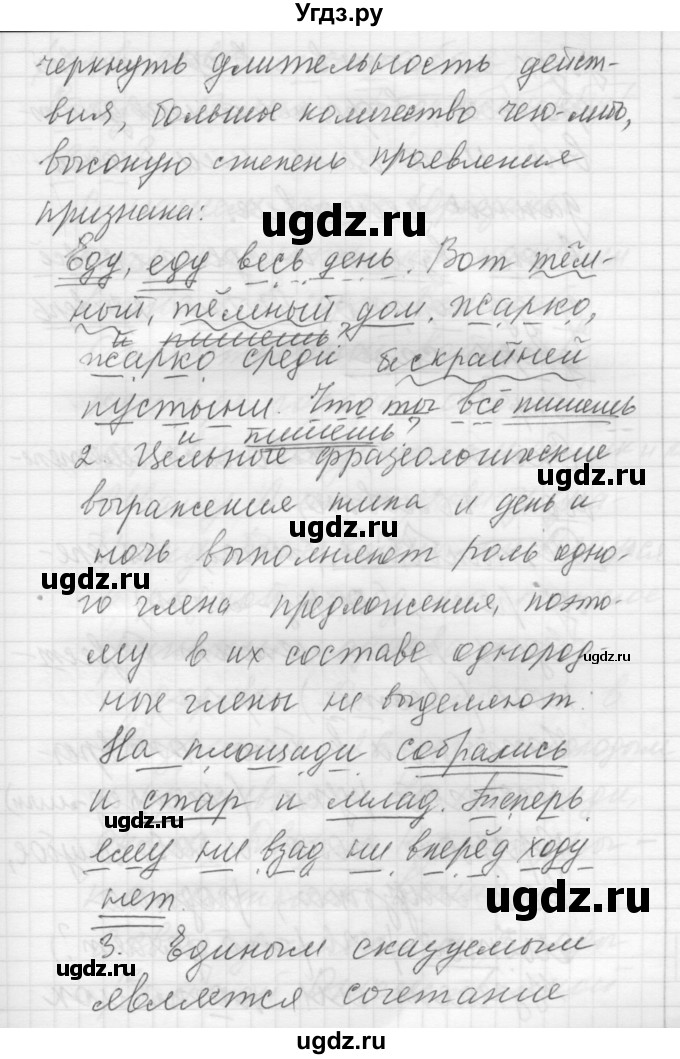 Угдз.ру
черкнуть длительность дейст-
вия, большое количество чего-либо,
высокую степень проявления
признака:
ugdz.ru
Еду, еду весь день. Вот тём-
ный, тёмный дом. Жарко,
и пишешь?
жарко среди бескрайней
пустыни. Что ты всё пишешь
и пишешь?
2. Цельные фразеологические
ugdz.ru
выражения типа и день и
ugdz.ru
ночь выполняют роль одно-
ugdz.ru
го члена предложения, поэто-
му в их составе однород-
ugdz.ru
ные члены не выделяют:
На площади собрались
и стар и млад. Теперь
ugdz.ru
ему ни взад ни вперёд ходу
нет.
ugdz.ru
3. Единым сказуемым
ugdz.ru
является сочетание
ugdz.ru